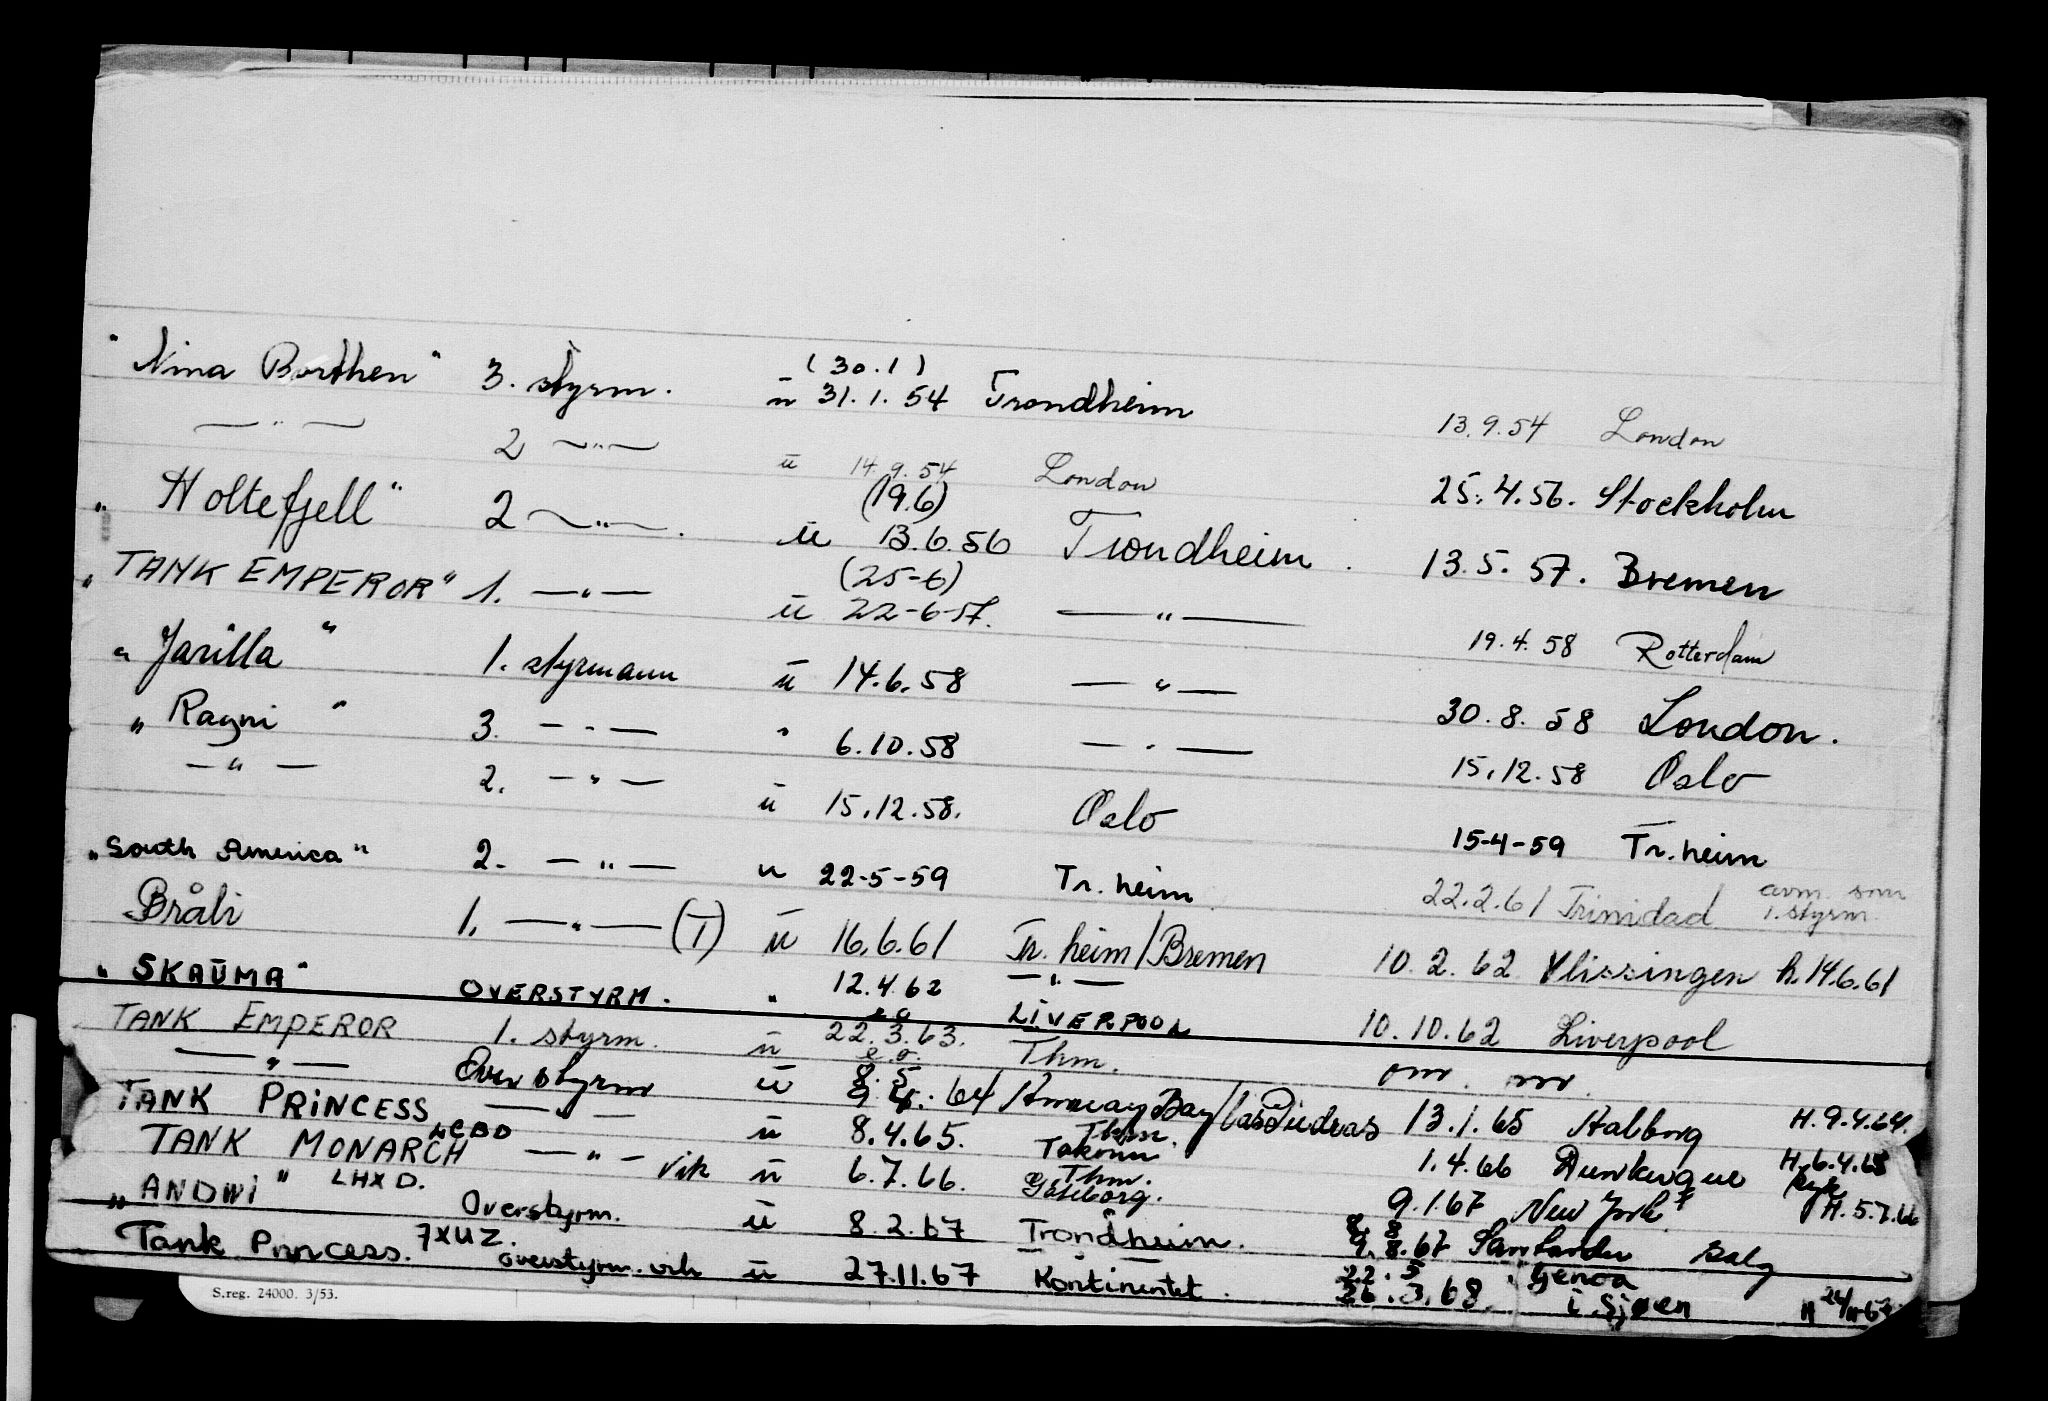 "Nina Borthen" 3. styrm. u (30.1) 31.1.54 Trondheim 13.9.54 London
—"— 2 —"— u 14.9.54 London 25.4.56. Stockholm
"Holtefjell" 2 —"—. u (19.6) 13.6.56 Trondheim. 13.5.57. Bremen
"TANK EMPEROR" 1. —"— u (25-6) 22-6-57. —"— 19.4.58 Rotterdam
"Jarilla" 1. styrmann u 14.6.58 —"— 30.8.58 London.
"Ragni" 3. —"— " 6.10.58 —"— 15.12.58 Oslo
—"— 2. —"— u 15.12.58. Oslo 15-4-59 Tr.heim
"South America" 2. —"— u 22-5-59 Tr.heim 22.2.61 Trinidad avm. som 1. styrm.
Bråli 1. —"— (T) u 16.6.61 Tr.heim/Bremen 10.2.62 Vlissingen h.14.6.61
"SKAUMA" OVERSTYRM. " 12.4.62 —"— LIVERPOOL 10.10.62 Liverpool
TANK EMPEROR 1. styrm. u 22.3.63. Thm.
—"— Overstyrm u 64 13.1.65 Aalborg H.9.4.64.
TANK PRINCESS —"— u 8.4.65. Thm. 1.4.66 Dunkerque H.6.4.65
TANK MONARCH LCBD —"— vik u 6.7.66. Thm. Gøteborg. 9.1.67 New York H.5.7.66
"ANDWI" LHXD. Overstyrm. u 8.2.67 Trondheim. 8.8 9.8.67 Santander salg
Tank Princess. 7XUZ. overstyrm. vik u 27.11.67 Kontinentet. 22.5 26.3.68. Genoa i sjøen H 24/11-67
S.reg. 24000. 3/53.